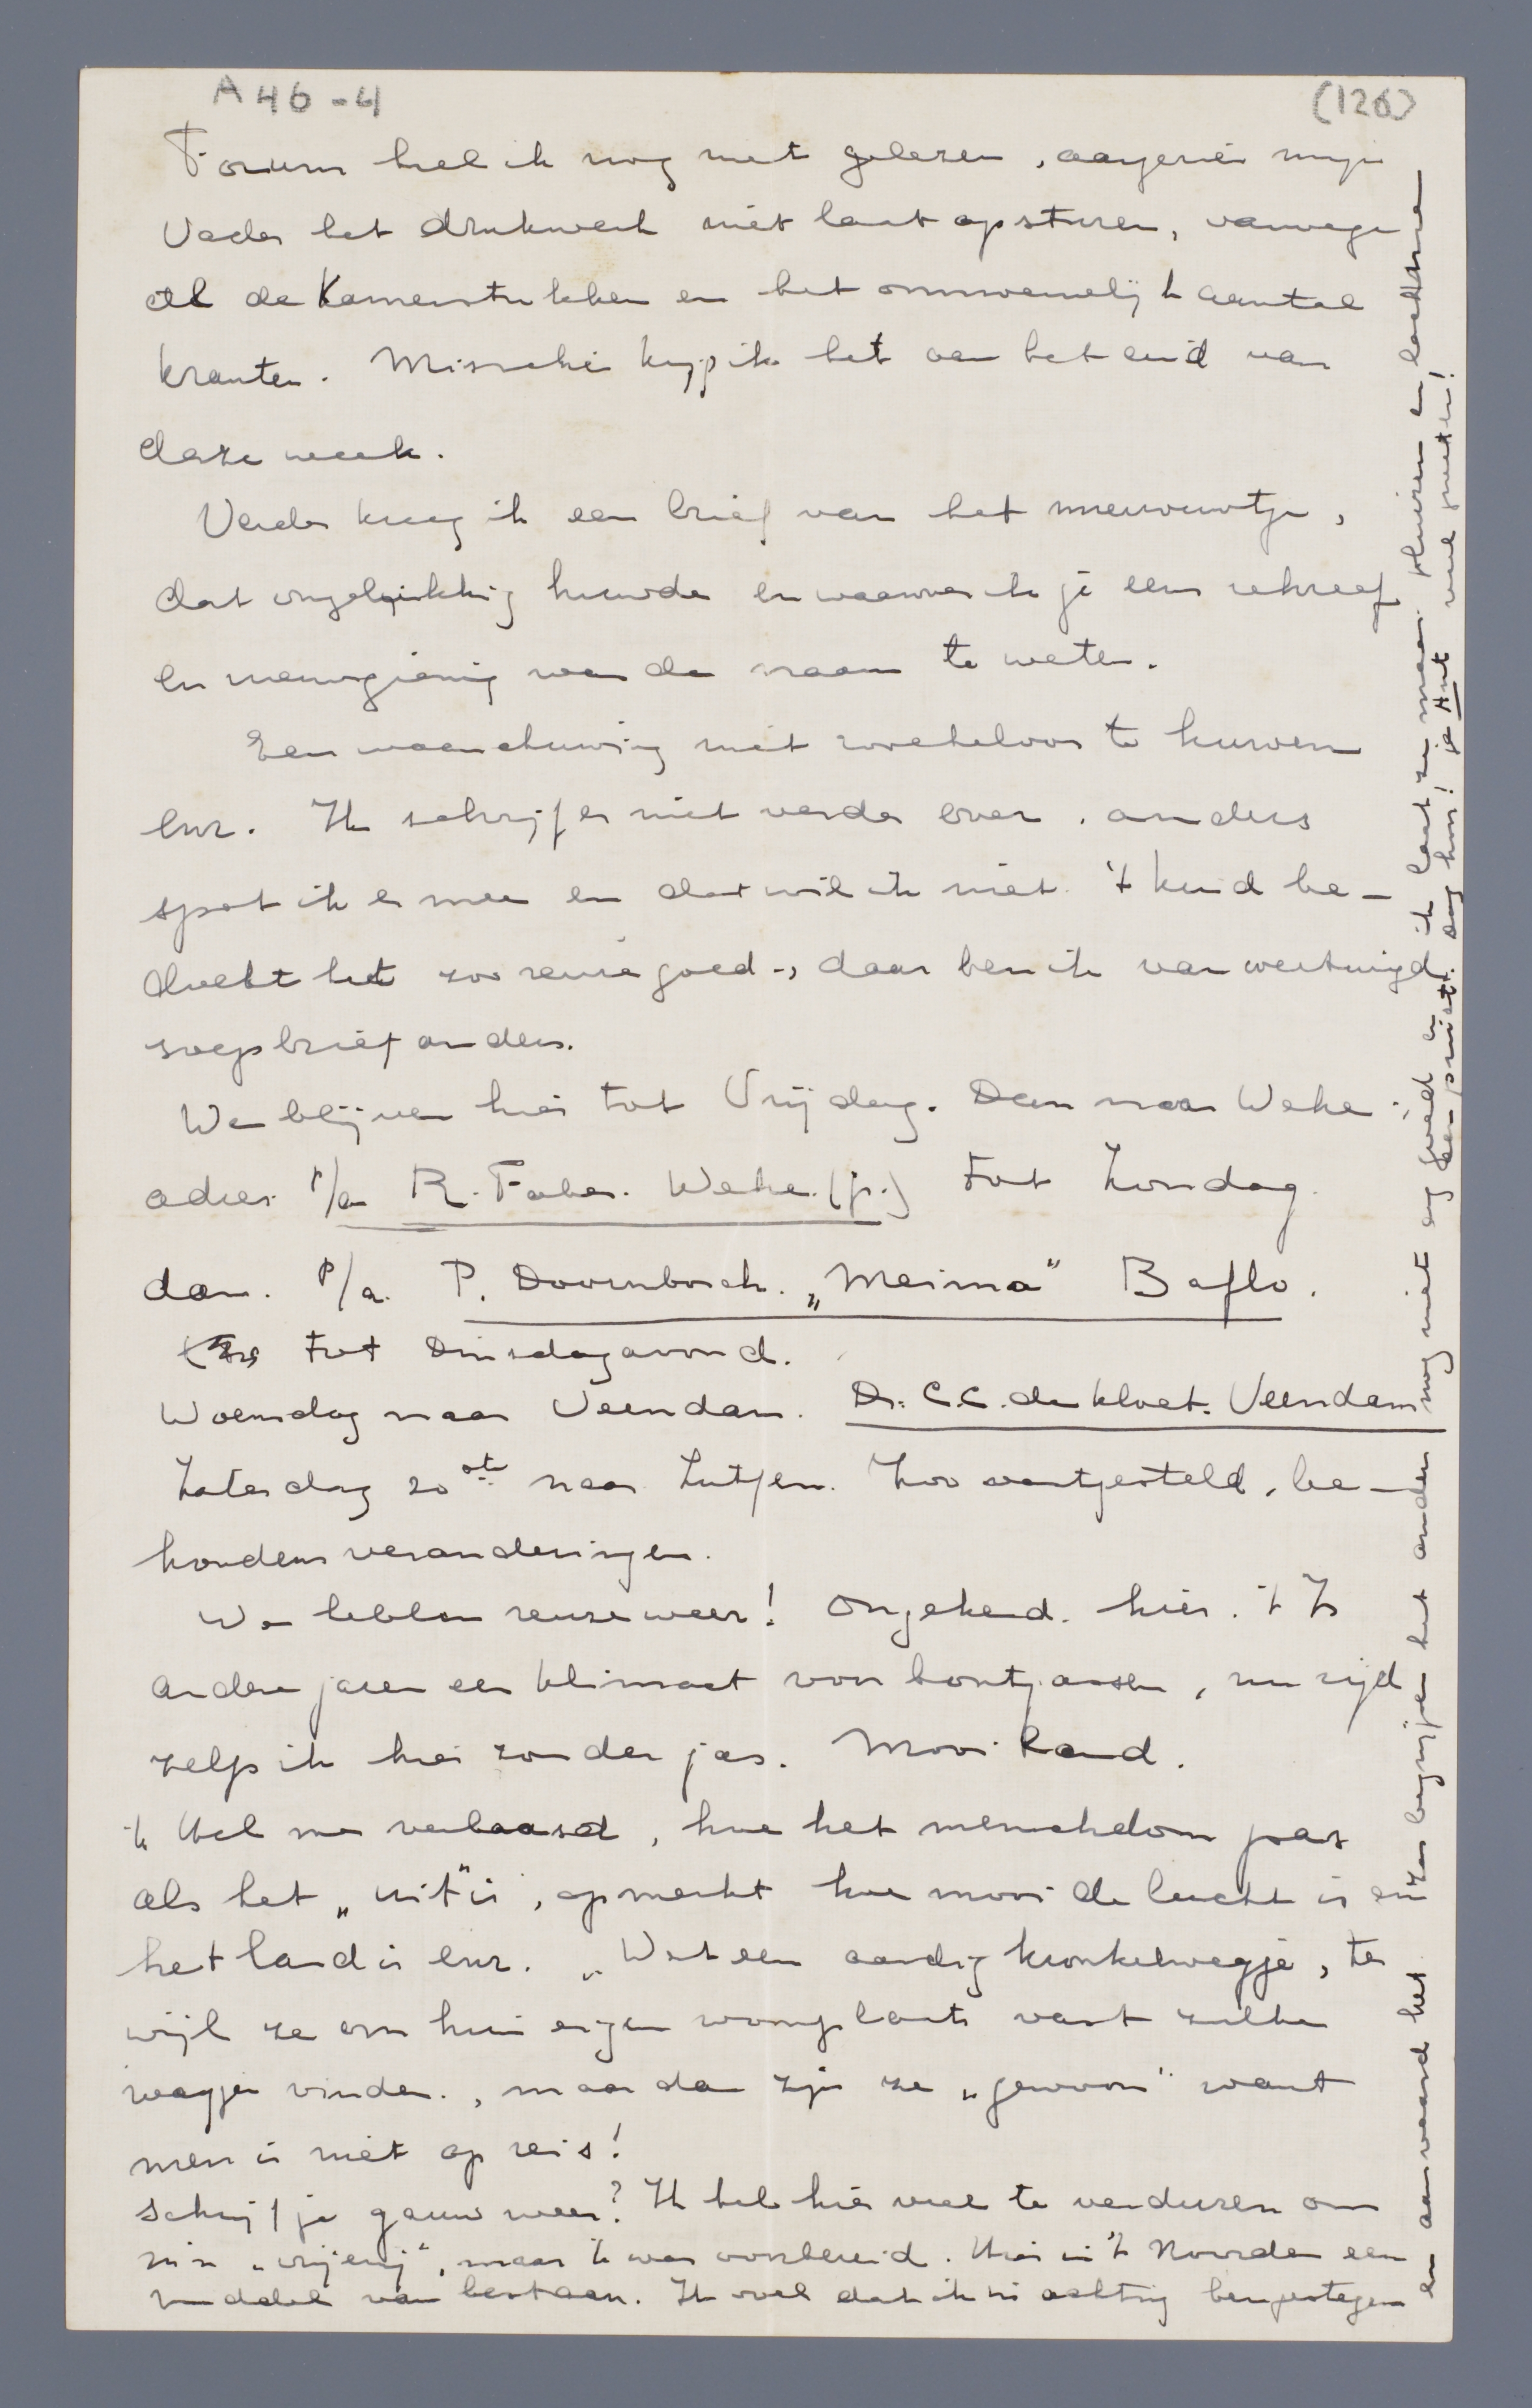 A46-4
(126)
Forum heb ik nog niet gelezen, aangezien mijn
Vader het drukwerk niet laat opsturen, vanwege
al de Kamerstukken en het onnoemelijk aantal
kranten. Misschien krijg ik het aan het eind van
deze week.
Verder kreeg ik een brief van het nieuwwtje,
dat ongelukkig huwde en waarover ik je eens schreef
en nieuwsgierig was de naam te weten.
Een waarschuwing niet roekeloos te huwen
enz. Ik schrijf er niet verder over, anders
spot ik er mee en dat wil ik niet. 't kind be-
doelt het zoo reuze goed -, daar ben ik van overtuigd.
brief anders.
We blijven hier tot Vrijdag. Dan naar Wehe -;
adres p/a R. Faber. Wehe. (gr.) tot Zondag.
dan. p/a. P. Doornbosch. „Meima" Baflo.
tot Dinsdagavond.
Woensdag naar Veendam. Dr. C.C. de Kloet. Veendam
Zaterdag 20ste naar Zutfen. Zoo vastgesteld, be-
houdens veranderingen.
We hebben reuze weer! Ongekend. hier. 't Is
andere jaren een klimaat voor bontjassen, nu rijd
zelfs ik hier zonder jas. Mooi land.
'k Heb me verbaasd, hoe het menschdom pas
als het „uit" is, opmerkt hoe mooi de lucht is en
het land is enz. „Wat een aardig kronkelwegje, ter
wijl ze om hun eigen woonplaats vast zulke
wegjes vinden., maar dan zijn ze „gewoon" want
men is niet op reis!
Schrijf je gauw weer? Ik heb hier veel te verduren om
m'n „vrijerij", maar 'k was voorbereid. Hier in 't Noorden een
middel van bestaan. Ik voel dat ik in achting ben gestegen
en aanvaard het. Zij begrijpen het andere nog niet erg goed en ik laat ze maar fluiren en lachen
een prist. Dag hoor! je Ant veel groeten!